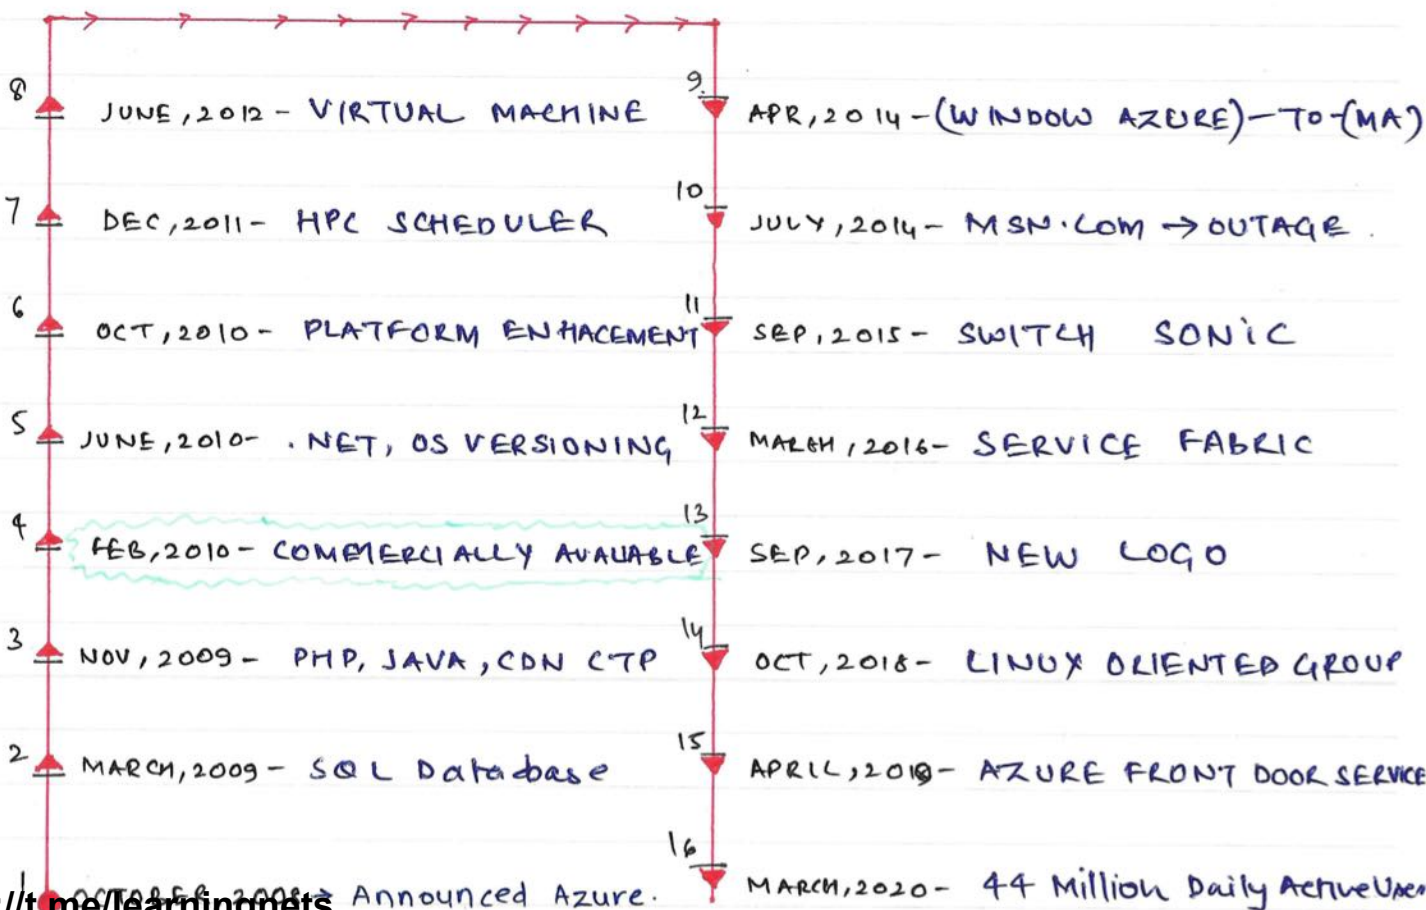 8
JUNE, 2012 - VIRTUAL MACHINE
7
DEC, 2011 - HPC SCHEDULER
6
OCT, 2010 - PLATFORM ENHACEMENT
5
JUNE, 2010 - .NET, OS VERSIONING
4
FEB, 2010 - COMMERCIALLY AVALIABLE
3
NOV, 2009 - PHP, JAVA, CDN CTP
2
MARCH, 2009 - SQL Database
1
OCTOBER 2008 → Announced Azure.
//t.me/learningnets
9.
APR, 2014 - (WINDOW AZURE) - TO - (MA)
10
JULY, 2014 - MSN.COM → OUTAGE.
11
SEP, 2015 - SWITCH SONiC
12
MARCH, 2016 - SERVICE FABRIC
13
SEP, 2017 - NEW LOGO
14
OCT, 2018 - LINUX ORIENTED GROUP
15
APRIL, 2019 - AZURE FRONT DOOR SERVICE
16
MARCH, 2020 - 44 Million Daily Active User